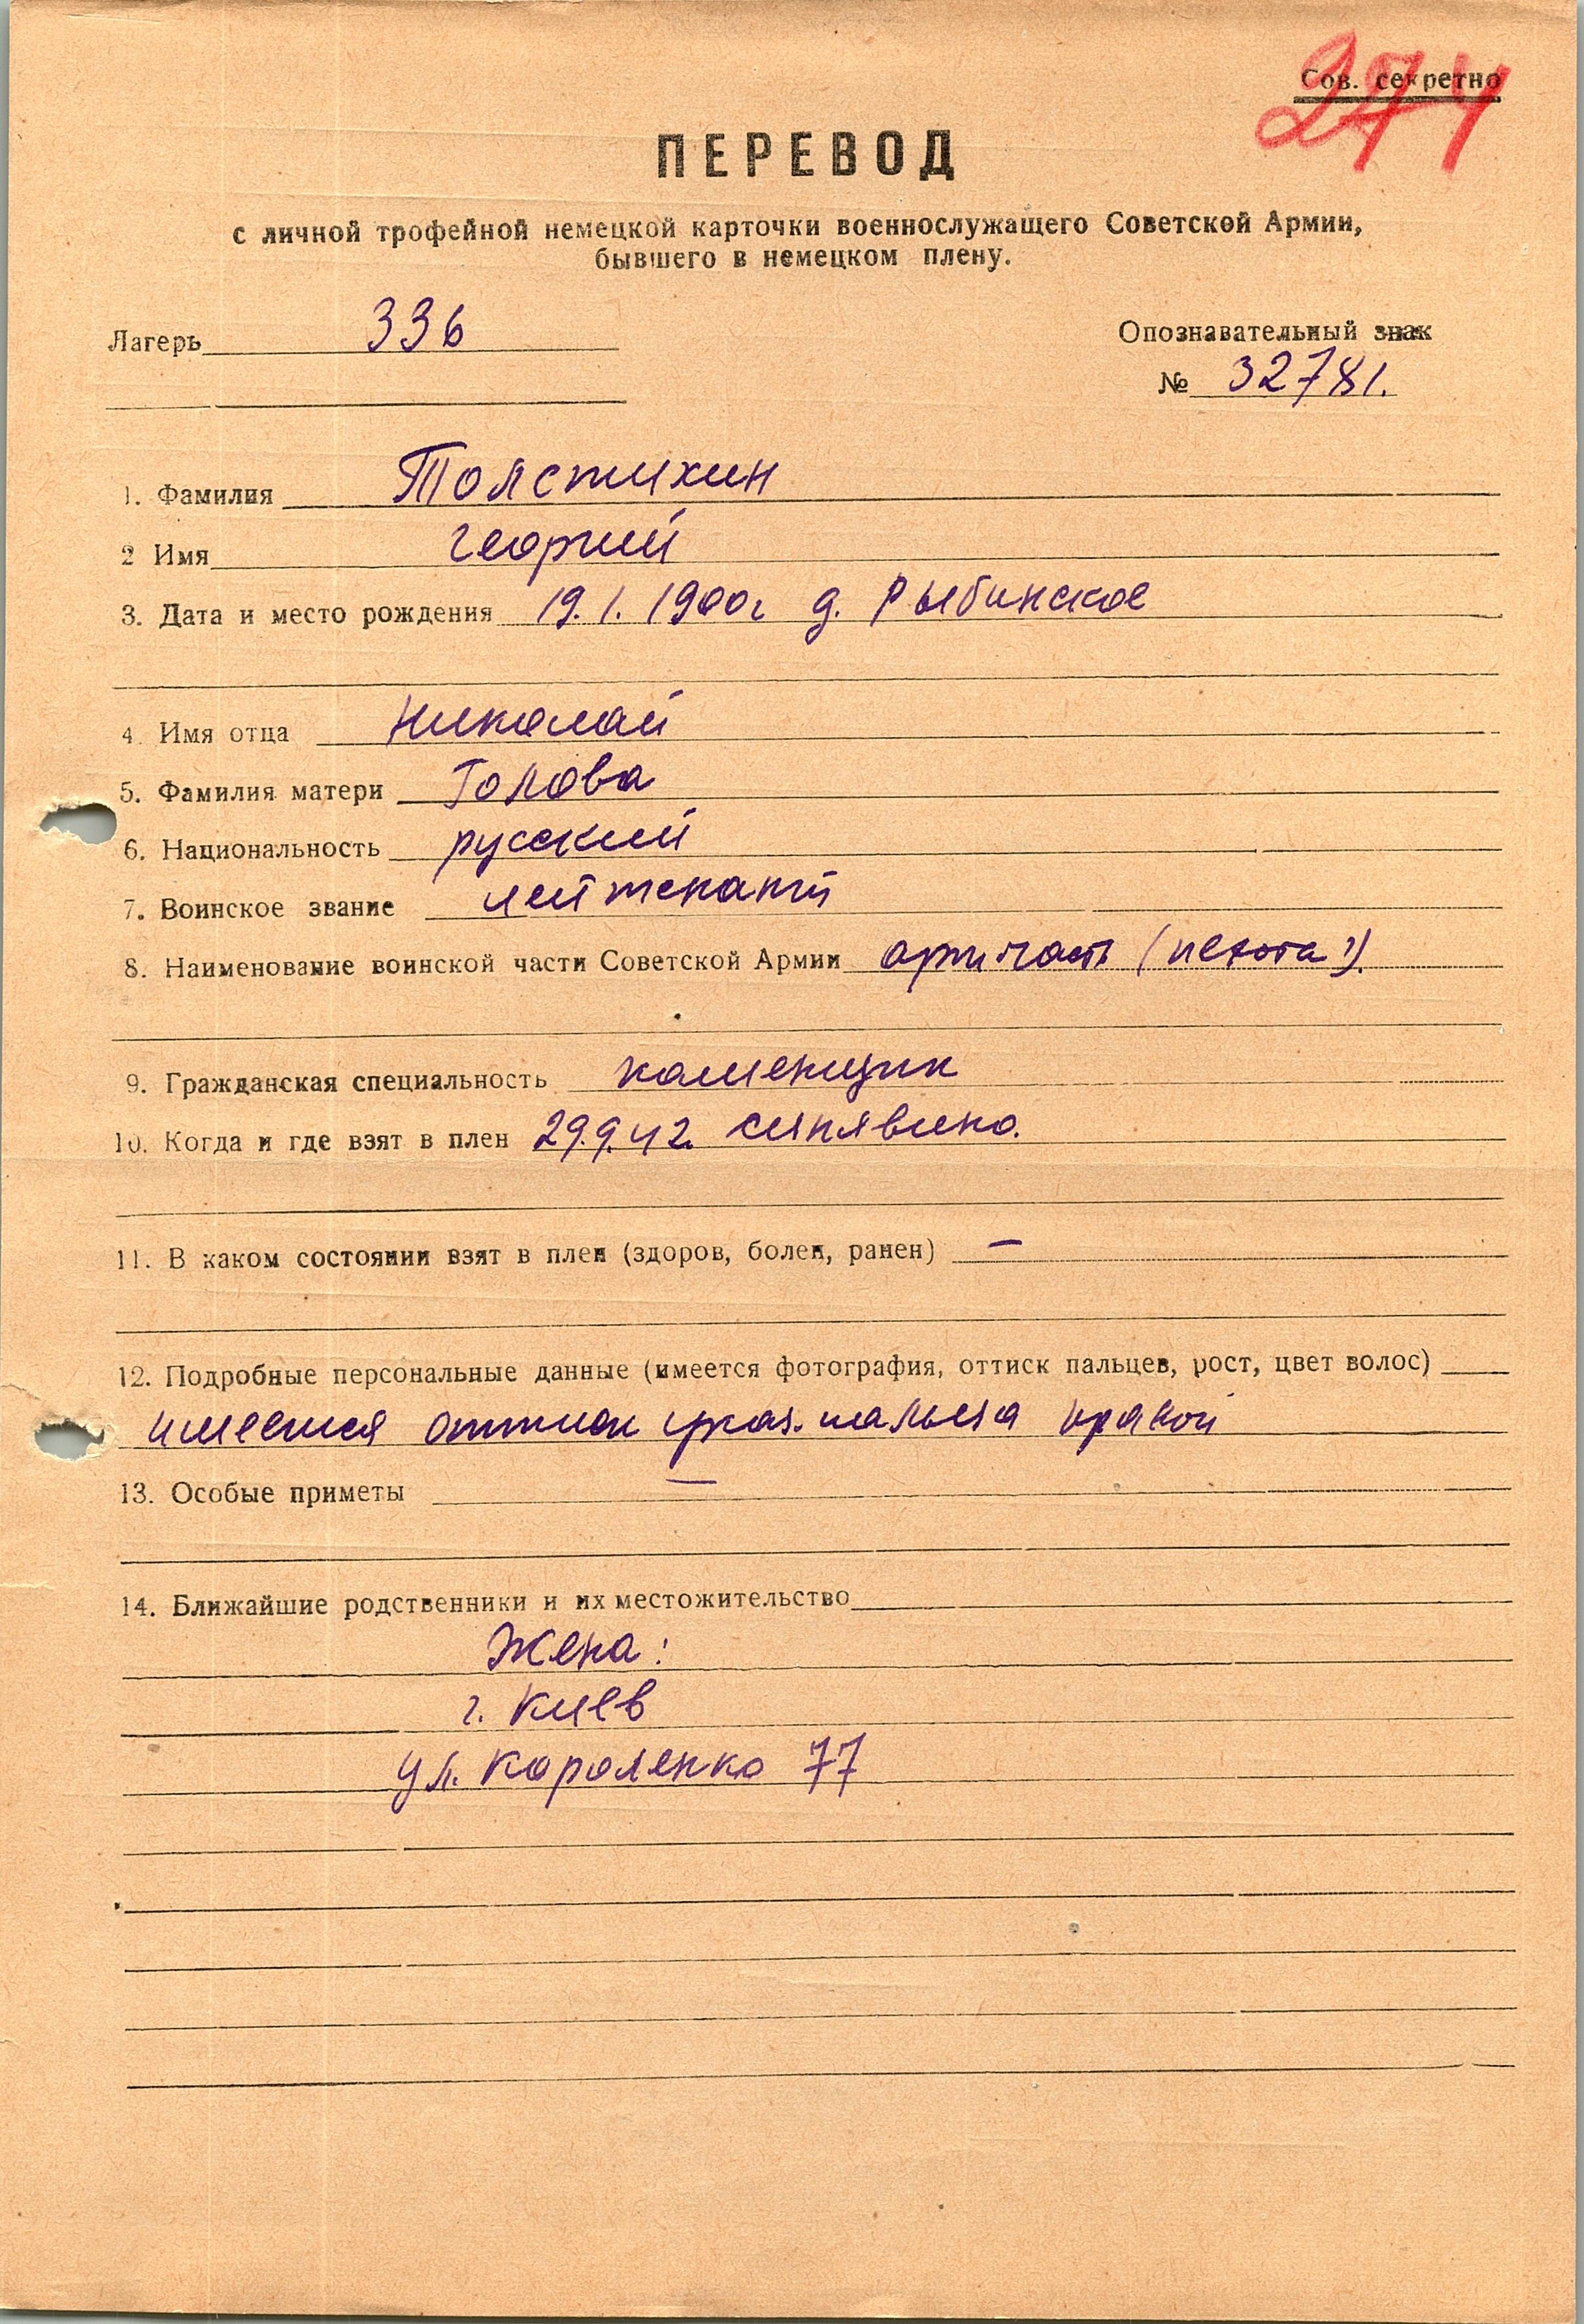 Сов. секретно
274
ПЕРЕВОД
с личной трофейной немецкой карточки военнослужащего Советской Армии,
бывшего в немецком плену.
Лагерь 336
Опознавательный знак
№ 32781.
1. Фамилия Толстихин
2 Имя Георгий
3. Дата и место рождения 19.1.1900г д. Рыбинское
4. Имя отца Николай
5. Фамилия матери Голова
6. Национальность русский
7. Воинское звание лейтенант
8. Наименование воинской части Советской Армии арт. часть (пехота?)
9. Гражданская специальность каменщик
10. Когда и где взят в плен 29.9.42. Синявино.
11. В каком состоянии взят в плен (здоров, болен, ранен) —
12. Подробные персональные данные (имеется фотография, оттиск пальцев, рост, цвет волос)
имеется оттиск указ. пальца правой
13. Особые приметы —
14. Ближайшие родственники и их местожительство
Жена:
г. Киев
ул. Короленко 77